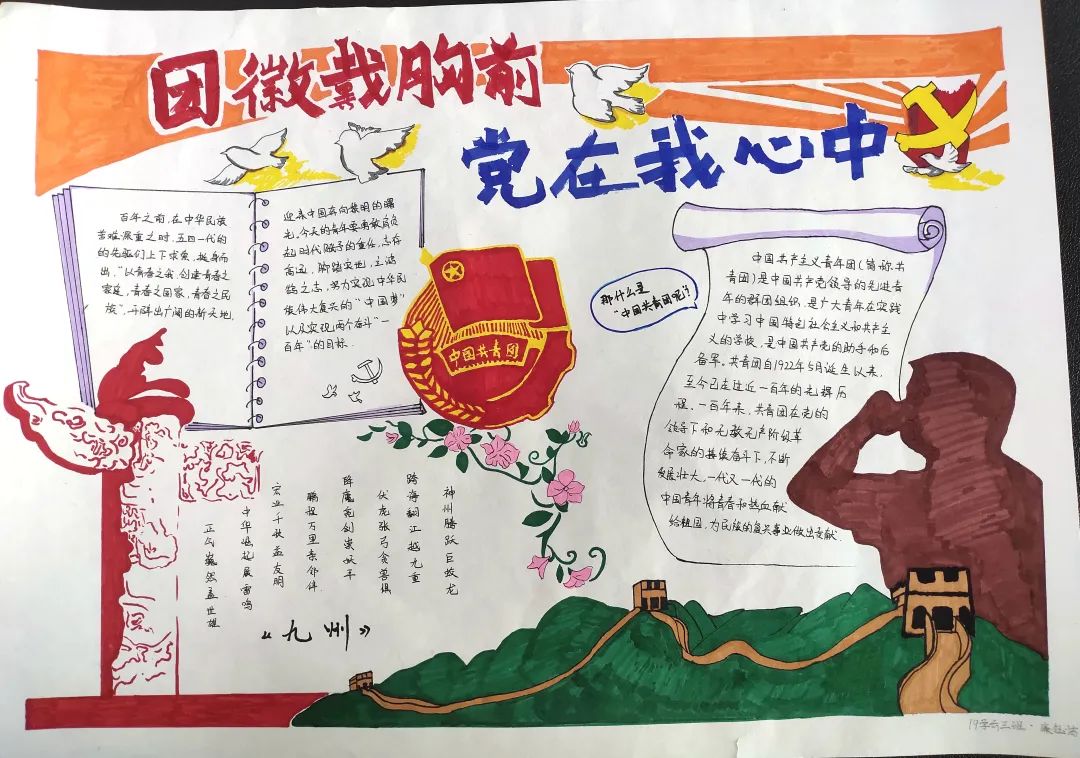 团徽戴胸前
党在我心中
百年之前,在中华民族
苦难深重之时,五四一代的
的先驱们上下求索,挺身而
出,“以青春之我,创造青春之
家庭,青春之国家,青春之民
族”,开辟出广阔的新天地,
迎来中国奔向黎明的曙
光。今天的青年要勇敢肩负
起时代赋予的重任,志存
高远,脚踏实地,立鸿
鹄之志,努力实现中华民
族伟大复兴的“中国梦”
以及实现“两个奋斗”一
百年”的目标.
中国共青团
那什么是
“中国共青团呢?
中国共产主义青年团(简称共
青团)是中国共产党领导的先进青
年的群团组织,是广大青年在实践
中学习中国特色社会主义和共产主
义的学校,是中国共产党的助手和后
备军。共青团自1922年5月诞生以来,
至今已走过近一百年的光辉历
程。一百年来,共青团在党的
领导下和无数无产阶级革
命家的其续奋斗下,不断
发展壮大,一代又一代的
中国青年将青春和热血献
给祖国,为民族的复兴事业做出贡献.
神州腾跃巨蛟龙
跨海翻江越九重
伏虎张弓贪兽惧
降魔亮剑祟妖平
鹏程万里亲邻伴
宏业千秋益友朋
中华崛起展雷鸣
正气巍然盖世雄
《九州》
19学六三班·